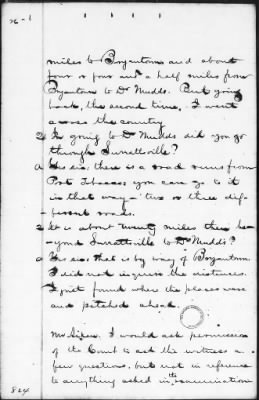 N-1
miles to Bryantown and about
four or four and a half miles from
Bryantown to Dr Mudds. But going
back, the second time, I went
across the country
Q In going to Dr Mudds did you go
through Surrattville?
A Yes sir; there is a road runs from
Port Tobacco you can go to it
in that way - two or three dif-
ferent roads.
Q It is about twenty miles then be-
yond Surrattville to Dr Mudds?
A Yes sir; that is by way of Bryantown.
I did not inquire the distances.
I just found where the places were
and pitched ahead.
Mr I would ask permission
of the Court to ask the witness a
few questions, but not in reference
to anything asked in the examination
824